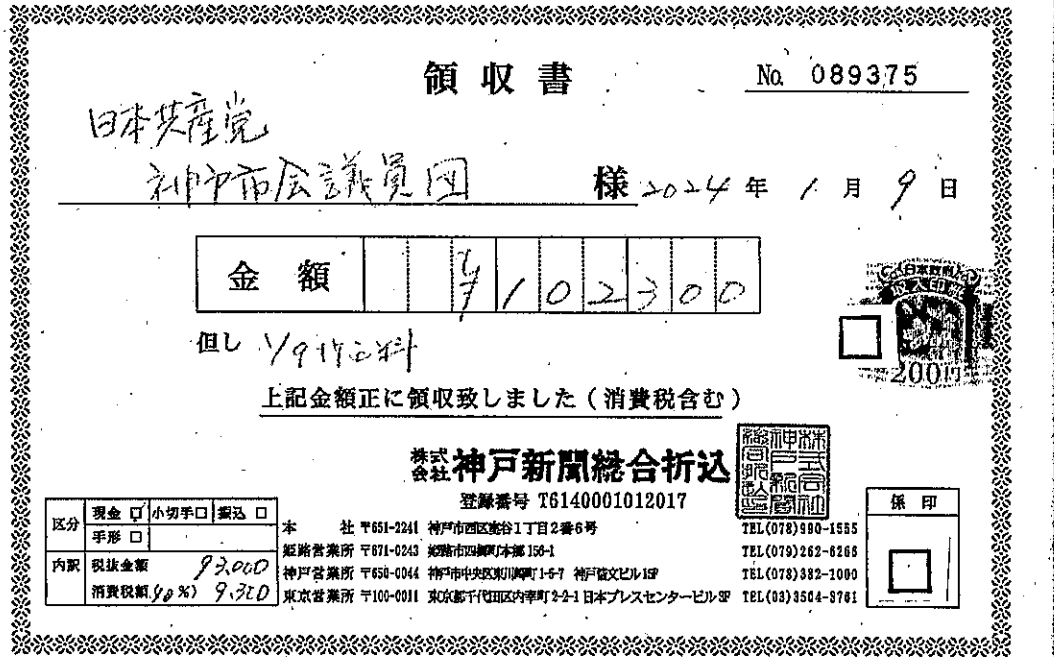 領収書
No. 089375
日本共産党
神戸市会議員団 様 2024年 1月 9日
金額 ¥102300
但し 1/9折込料
上記金額正に領収致しました(消費税含む)
日本政府
収入印紙
200円
株式会社 神戸新聞総合折込
登録番号 T6140001012017
係印
区分 現金 □ 小切手 □ 振込 □
手形 □
内訳 税抜金額 93,000
消費税額(10%) 9,300
本社 〒651-2241 神戸市西区室谷1丁目2番6号 TEL(078)990-1555
姫路営業所 〒671-0243 姫路市四郷町本郷156-1 TEL(079)262-6266
神戸営業所 〒650-0044 神戸市中央区東川崎町1-5-7 神戸情文ビル15F TEL(078)382-1000
東京営業所 〒100-0011 東京都千代田区内幸町2-2-1 日本プレスセンタービル TEL(03)3504-3761